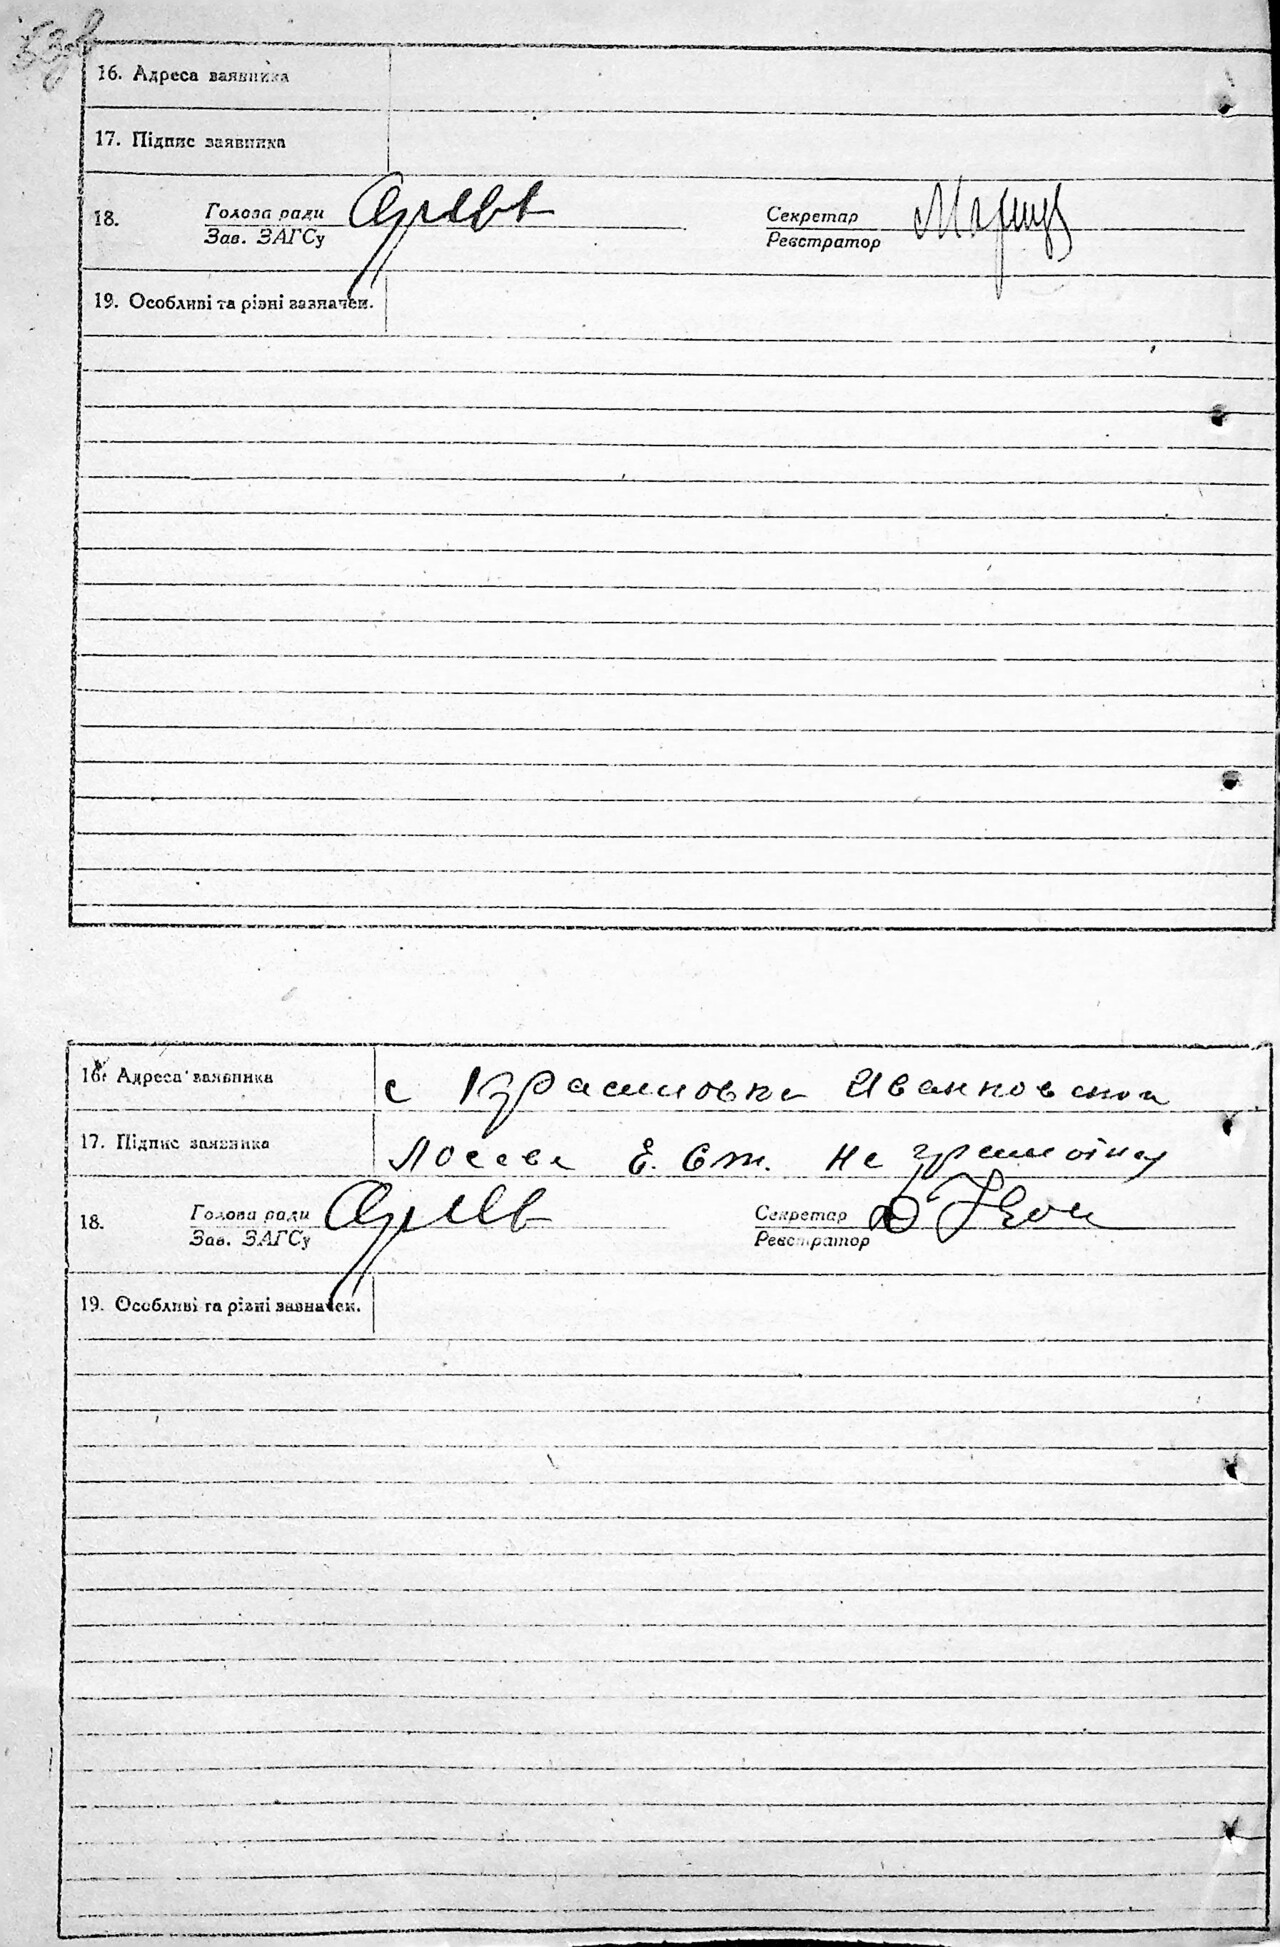 16. Адреса заявника
17. Підпис заявника
18. Голова ради Секретар
Зав. ЗАГСу Реєстратор
19. Особливі та різні зазначен.
16. Адреса заявника с Красиловка Иванковской
17. Підпис заявника Лосева Е. Ст. не грамотна
18. Голова ради Секретар
Зав. ЗАГСу Реєстратор
19. Особливі та різні зазначен.